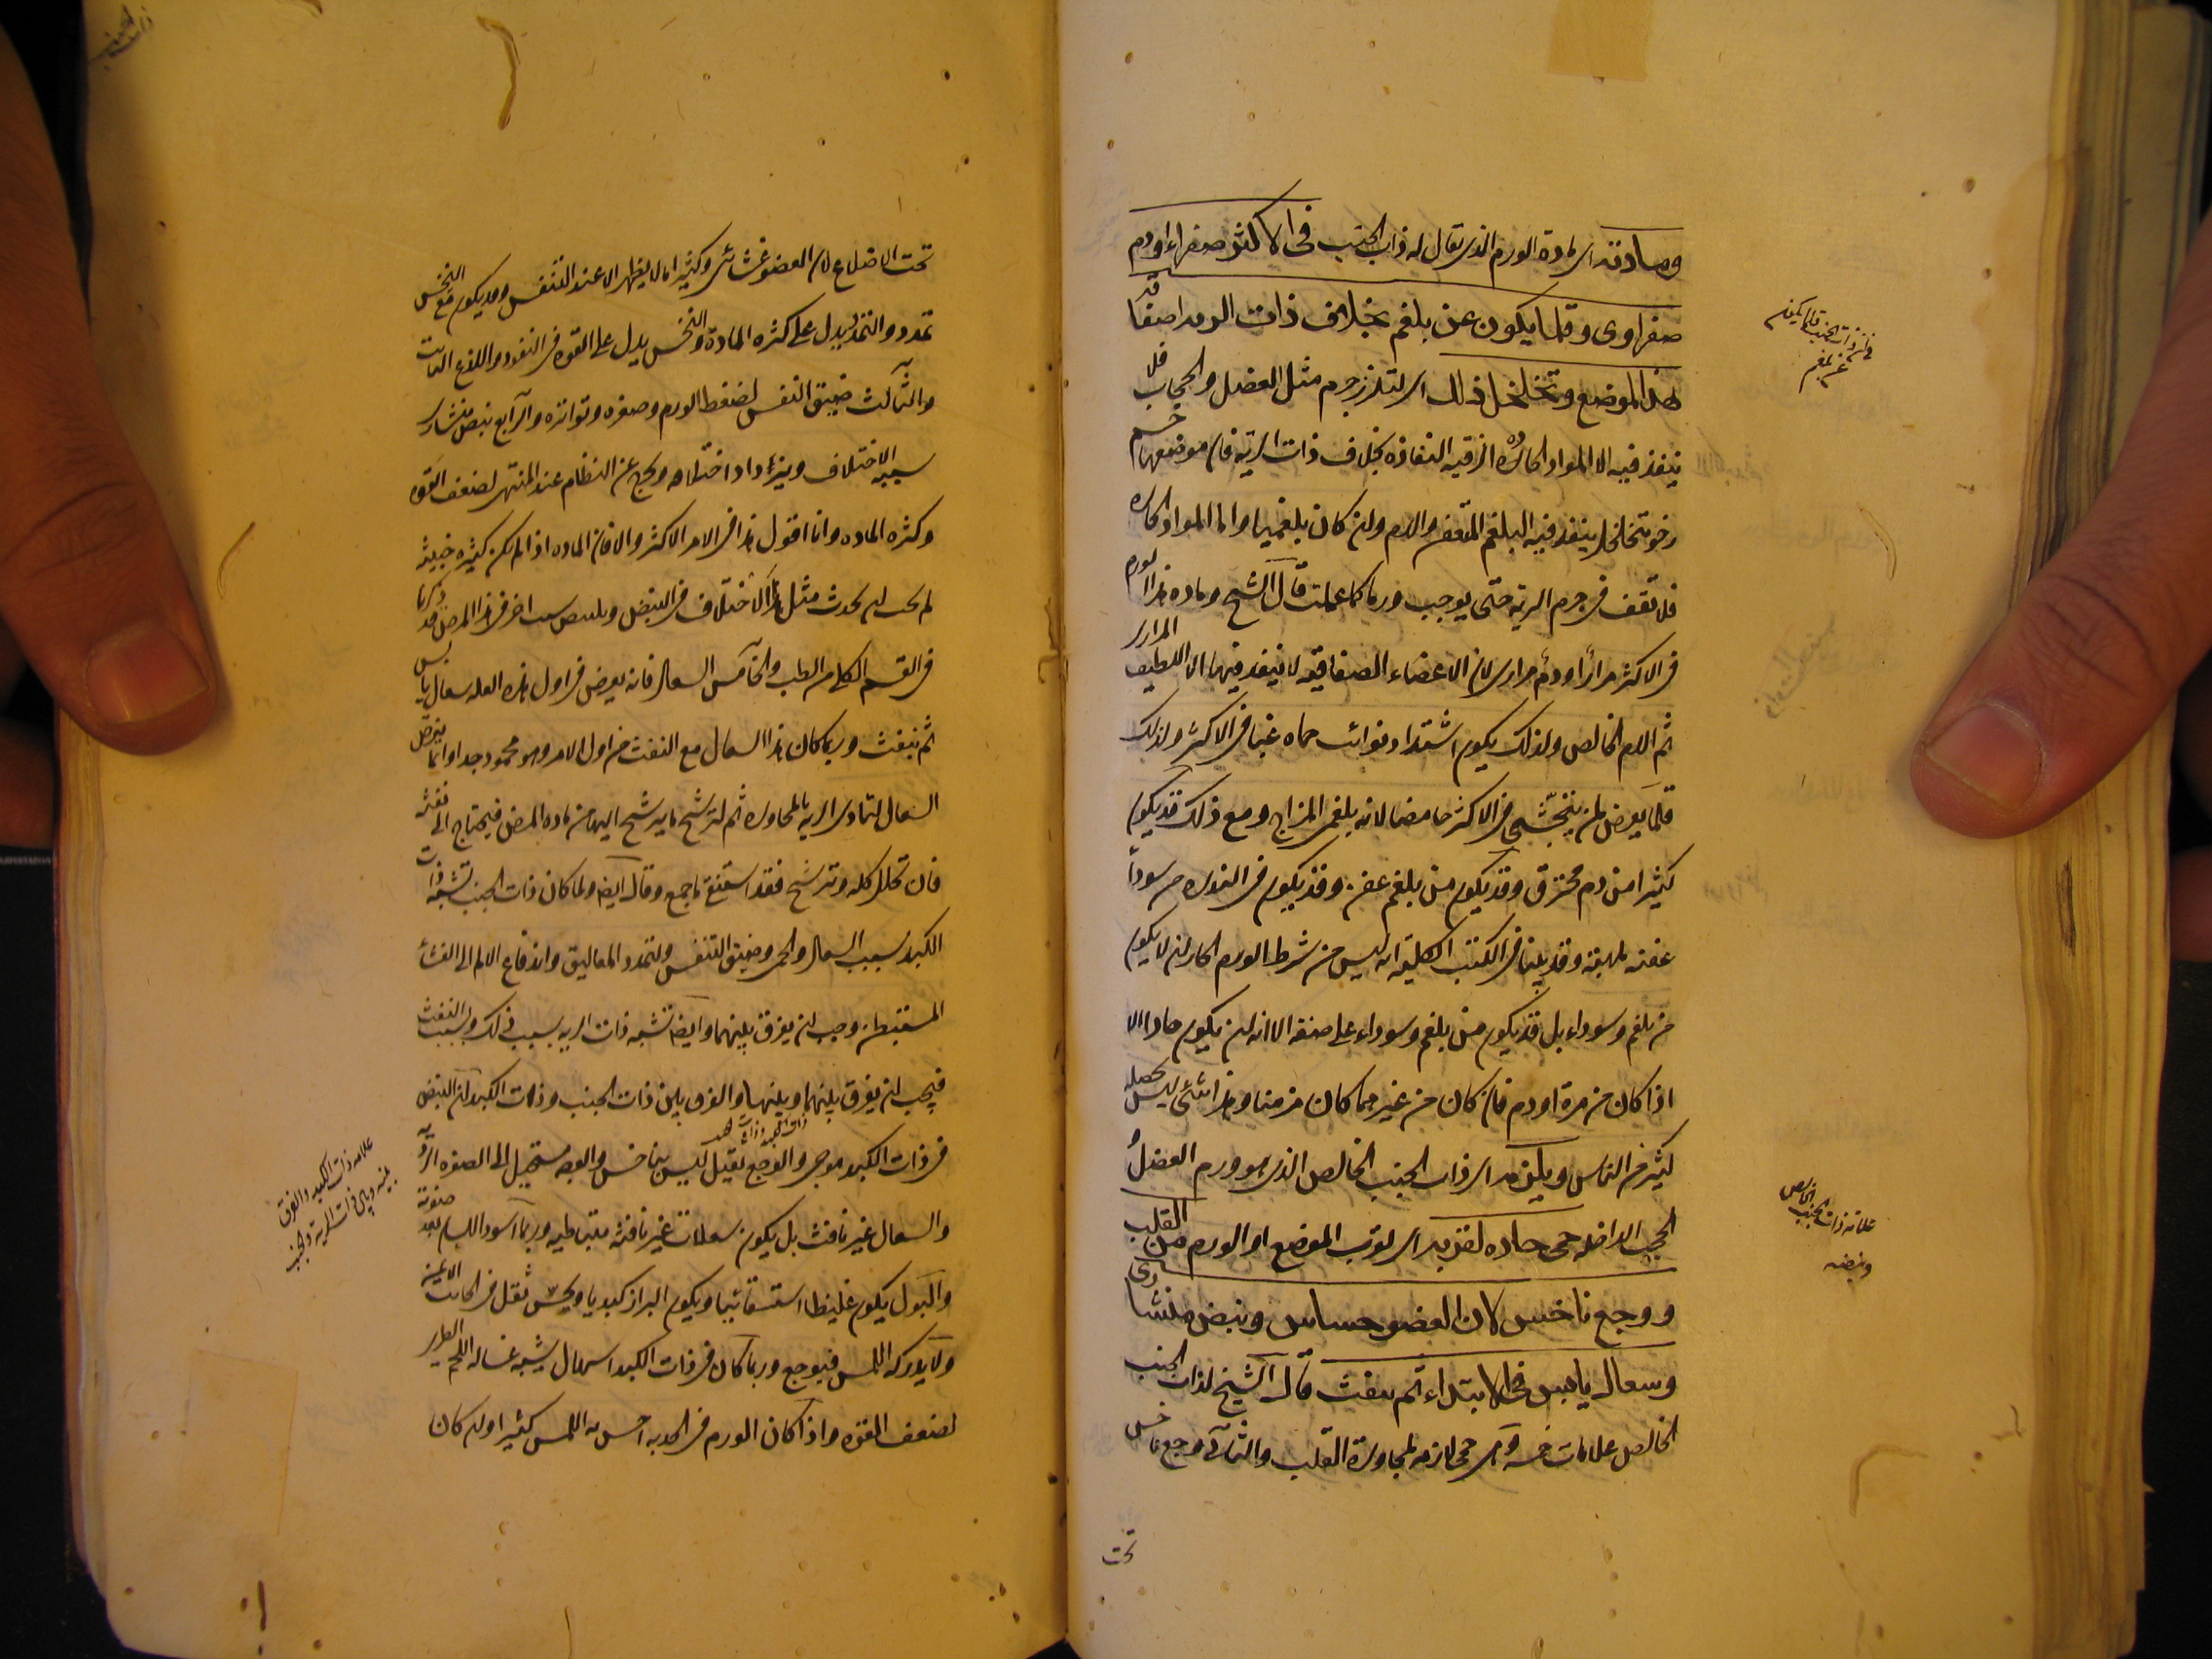 ومادته اى مادة الورم الذى يقال له ذات الجنب فى الاكثر صفراء او دم
صفراوى وقلما يكون عن بلغم بخلاف ذات الريه اصفاقة
هذا الموضع وتخلخل ذلك اى لتلزز جرم مثل العضل والحجاب فلا
ينفذ فيه الا المواد الحاده الرقيه النفاذه بخلاف ذات الرية فان موضعها جسم
رخو متخلخل ينفذ فيه البلغم المتعفن والدم وان كان بلغميا واما المواد الحاره
فلا تقف فى جرم الرية حتى يوجب ورما كما علمت قال الشيخ وماده هذا الورم
فى الاكثر مرارا او دم مرارى لان الاعضاء الصفاقيه لا ينفذ فيها الا اللطيف المرارى
ثم الدم الخالص ولذلك يكون اشتداد نوائب حماه غبا فى الاكثر ولذلك
قلما يعرض لمن يتجشى فى الاكثر حامضا لانه بلغمى المزاج ومع ذلك قد يكون
كثيرا من دم محترق وقد يكون من بلغم عفن وقد يكون فى الندره من سوداء
عفنه ملهبة وقد بينا فى الكتب الكلية انه ليس من شرط الورم الحار ان لا يكون
من بلغم وسوداء بل قد يكون من بلغم وسوداء على صفة الا انه لن يكون حادا الا
اذا كان من مرة او دم فان كان من غيرهما كان مزمنا وهذا شئ ليس يحصله
كثير من الناس ويلزمه اى ذات الجنب الخالص الذى هو ورم العضل
الحجب الداخله حمى حاده لقربه اى لقرب الموضع او الورم من القلب
ووجع ناخس لان العضو حساس ونبض منشارى
وسعال يابس فى الابتداء ثم ينفث قال الشيخ لذات الجنب
الخالص علامات خمسه وهى حمى لازمه لمجاورة القلب والثانى وجع ناخس
فى ان ذات الجنب قلما يكون
عن بلغم
علامة ذات الجنب الخالص
ونبضه
تحت
ذات الجنب
تحت الاضلاع لان العضو غشائى وكثيرا ما لا يظهر الا عند التنفس وقد يكون مع النخس
تمدد والتمدد يدل على كثره المادة والنخس يدل على القوه فى النفوذ واللذع
والثالث ضيق النفس لضغط الورم وصغره وتواتره والرابع نبض منشارى
سببه الاختلاف ويزداد اختلافه ويخرج عن النظام عند المنتهى لضعف القوه
وكثره الماده وانا اقول هذا فى الامر الاكثر والا فان الماده اذا لم يكن كثيره خبيثه
لم يجب ان يحدث مثل هذا الاختلاف فى النبض اخر فى هذا المرض قد ذكرنا
فى القسم الكلى من الطب والخامس السعال فانه يعرض فى اول هذه العله سعال يابس
ثم ينفث وربما كان هذا السعال مع النفث من اول الامر وهو محمود جدا وانما يعرض
السعال لتاذى الريه بالمجاوره ثم لترشح ما يرشح اليها من ماده المرض فيحتاج الى نفثه
فان تحلل كله وترشح فقد استنقى ما جمع وقال ايضا ولما كان ذات الجنب تشبه ذات
الكبد بسبب السعال والحمى وضيق التنفس ولتمدد المعاليق واندفاع الالم الى الغشاء
المستبطن وجب ان يفرق بينهما وايضا تشبه ذات الريه بسبب ذلك وبسبب النفث
فيجب ان يفرق بينهما وبينها والفرق بين ذات الجنب وذات الكبد ان النبض
فى ذات الكبد موجى والوجع ثقيل ليس بناخس والوجه مستحيل الى الصفره الرديه
والسعال غير نافث بل يكون سعلات غير نافثه متباطيه وربما اسود اللسان بعد صفرته
والبول يكون غليظا استسقائيا ويكون البراز كبديا ويحس ثقل فى الجانب الايمن
ولا يدركه اللمس فيوجع وربما كان فى ذات الكبد اسهال يشبه غساله اللحم الطرى
لضعف القوه واذا كان الورم فى الحدبه احس به اللمس كثيرا وان كان
علامه ذات الكبد والفرق
بينه وبين ذات الرية والجنب